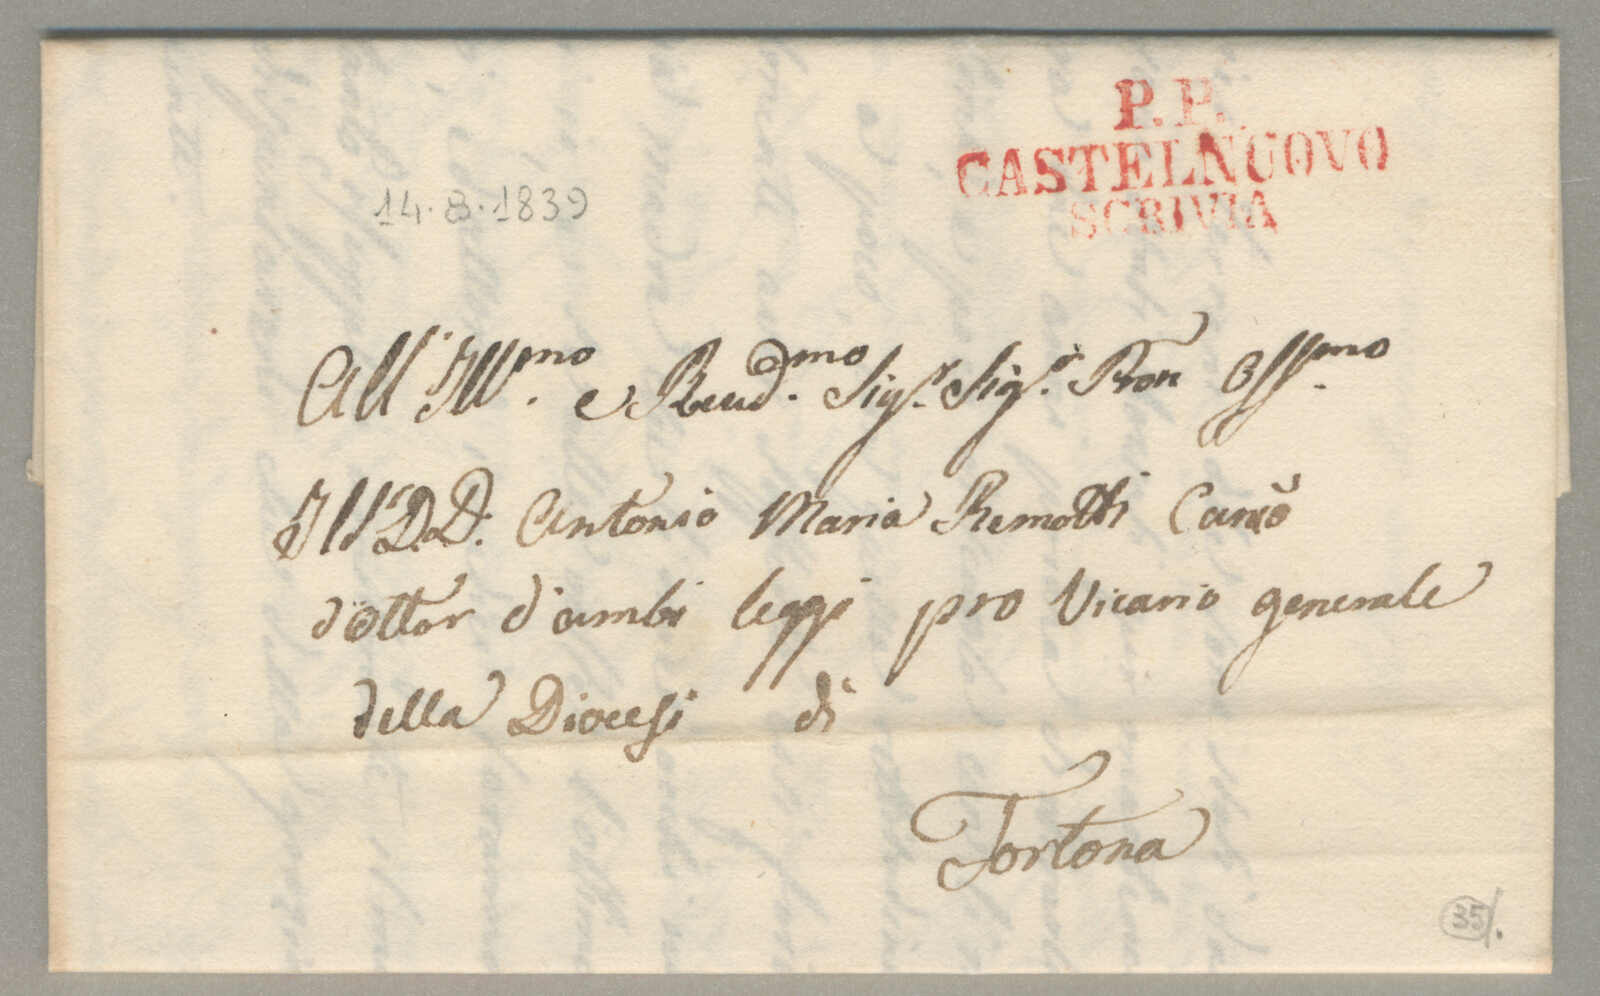 P. P.
CASTELNUOVO
SCRIVIA
14.8.1839
All'Ill.mo e Reud.mo Sig.r Sig.r Pron Oss.mo
Il Sr D.D. Antonio Maria Remotti Canco
dottor d'ambi leggi pro Vicario generale
della Diocesi di
Tortona
35/.